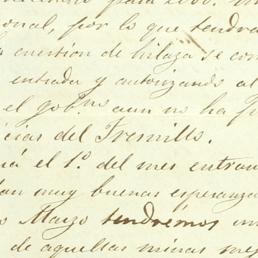 para 2000.
onal, por lo que tendra
cuestion de hilaza se con
entrada y autorizando al
el gob.no aun no ha
cias del Fresnillo.
el 1º del mes entran
tan muy buenas esperanza
Marzo tendrémos un
de aquellas minas mej